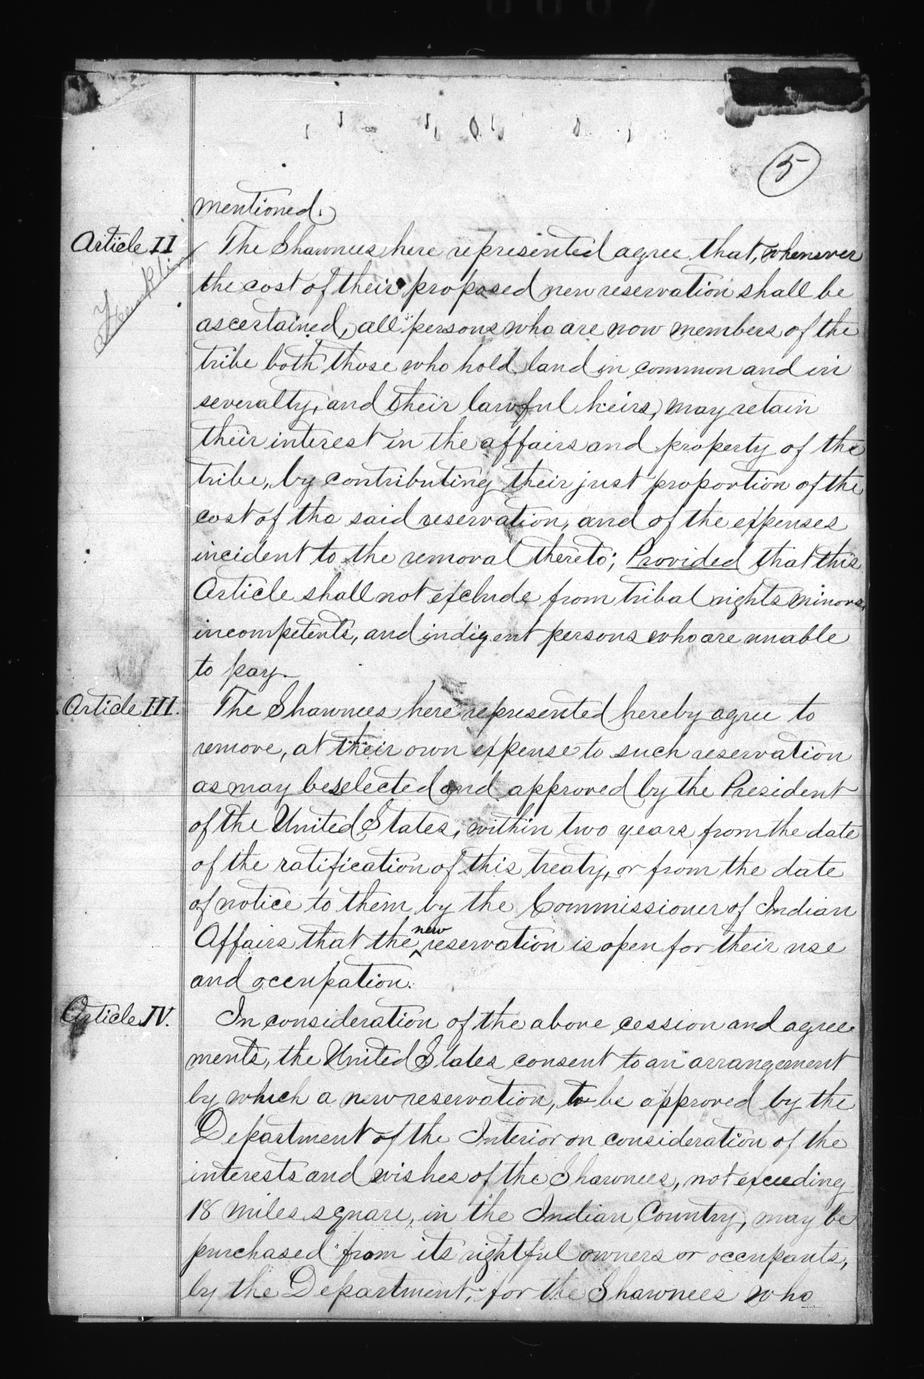 5
mentioned.
Article II
The Shawnees here represented agree that, whenever
the cost of their proposed new reservation shall be
ascertained, all persons who are now members of the
tribe both those who hold land in common and in
severalty, and their lawful heirs, may retain
their interest in the affairs and property of the
tribe, by contributing their just proportion of the
cost of the said reservation, and of the expenses
incident to the removal thereto; Provided that this
Article shall not exclude from tribal rights minors,
incompetents, and indigent persons who are unable
to pay.
Article III.
The Shawnees here represented hereby agree to
remove, at their own expense to such reservation
as may be selected and approved by the President
of the United States, within two years from the date
of the ratification of this treaty, or from the date
of notice to them by the Commissioner of Indian
Affairs that the new reservation is open for their use
and occupation.
Article IV.
In consideration of the above cession and agree
ments, the United States consent to an arrangement
by which a new reservation, to be approved by the
Department of the Interior on consideration of the
interests and wishes of the Shawnees, not exceeding
18 miles square, in the Indian Country, may be
purchased from its rightful owners or occupants,
by the Department, for the Shawnees who